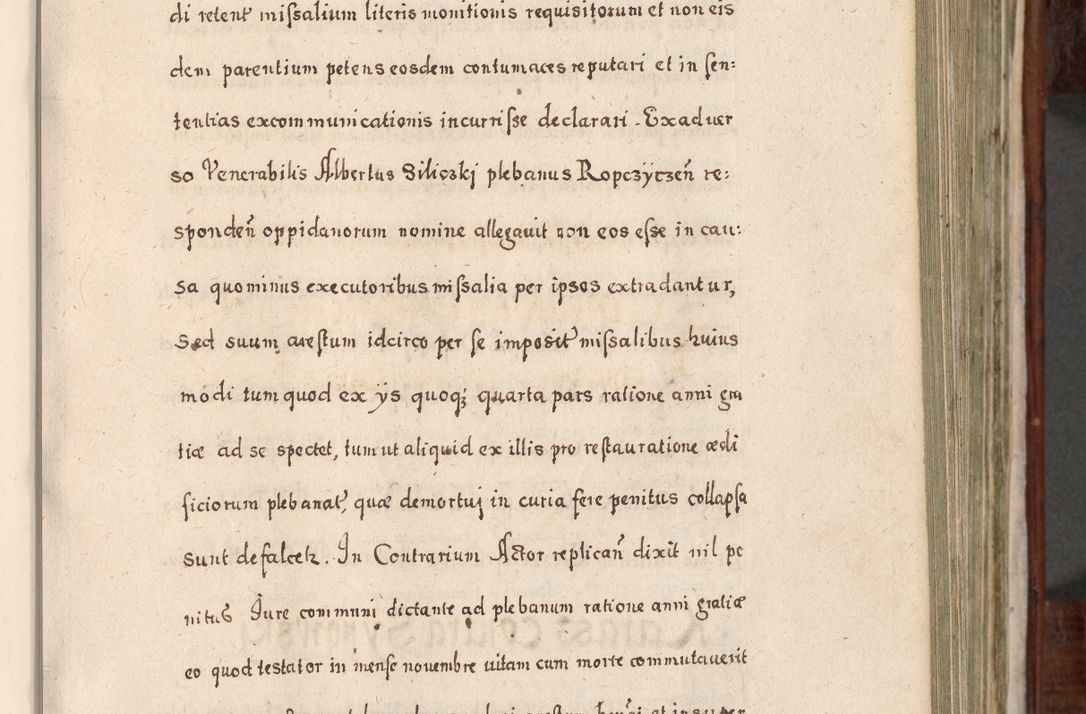 di retent missalium literis monitionis requisitorum et non eis
dem parentium petens eosdem contumaces reputari et in sen:
tentias excommunicationis incurrisse declarari . Ex aduer
so Venerabilis Albertus Siliczkj plebanus Ropczÿczeñ re:
spondeñ oppidanorum nomine allegauit non eos esse in cau:
sa quominus executoribus missalia per ipsos extradantur,
Sed suum arestum idcirco per se imposit missalibus huius
modi tum quod ex ÿs quoq; quarta pars ratione anni gra
tiæ ad se spectet, tum ut aliquid ex illis pro restauratione ædi
ficiorum plebanat, quæ demortuj in curia fere penitus collapsa
sunt defalcetr. In Contrarium Actor replicañ dixit nil pe
nitus Jure communi dictante ad plebanum ratione anni gratiæ
eo quod testator in mense nouembre uitam cum morte commutauerit
et insuper